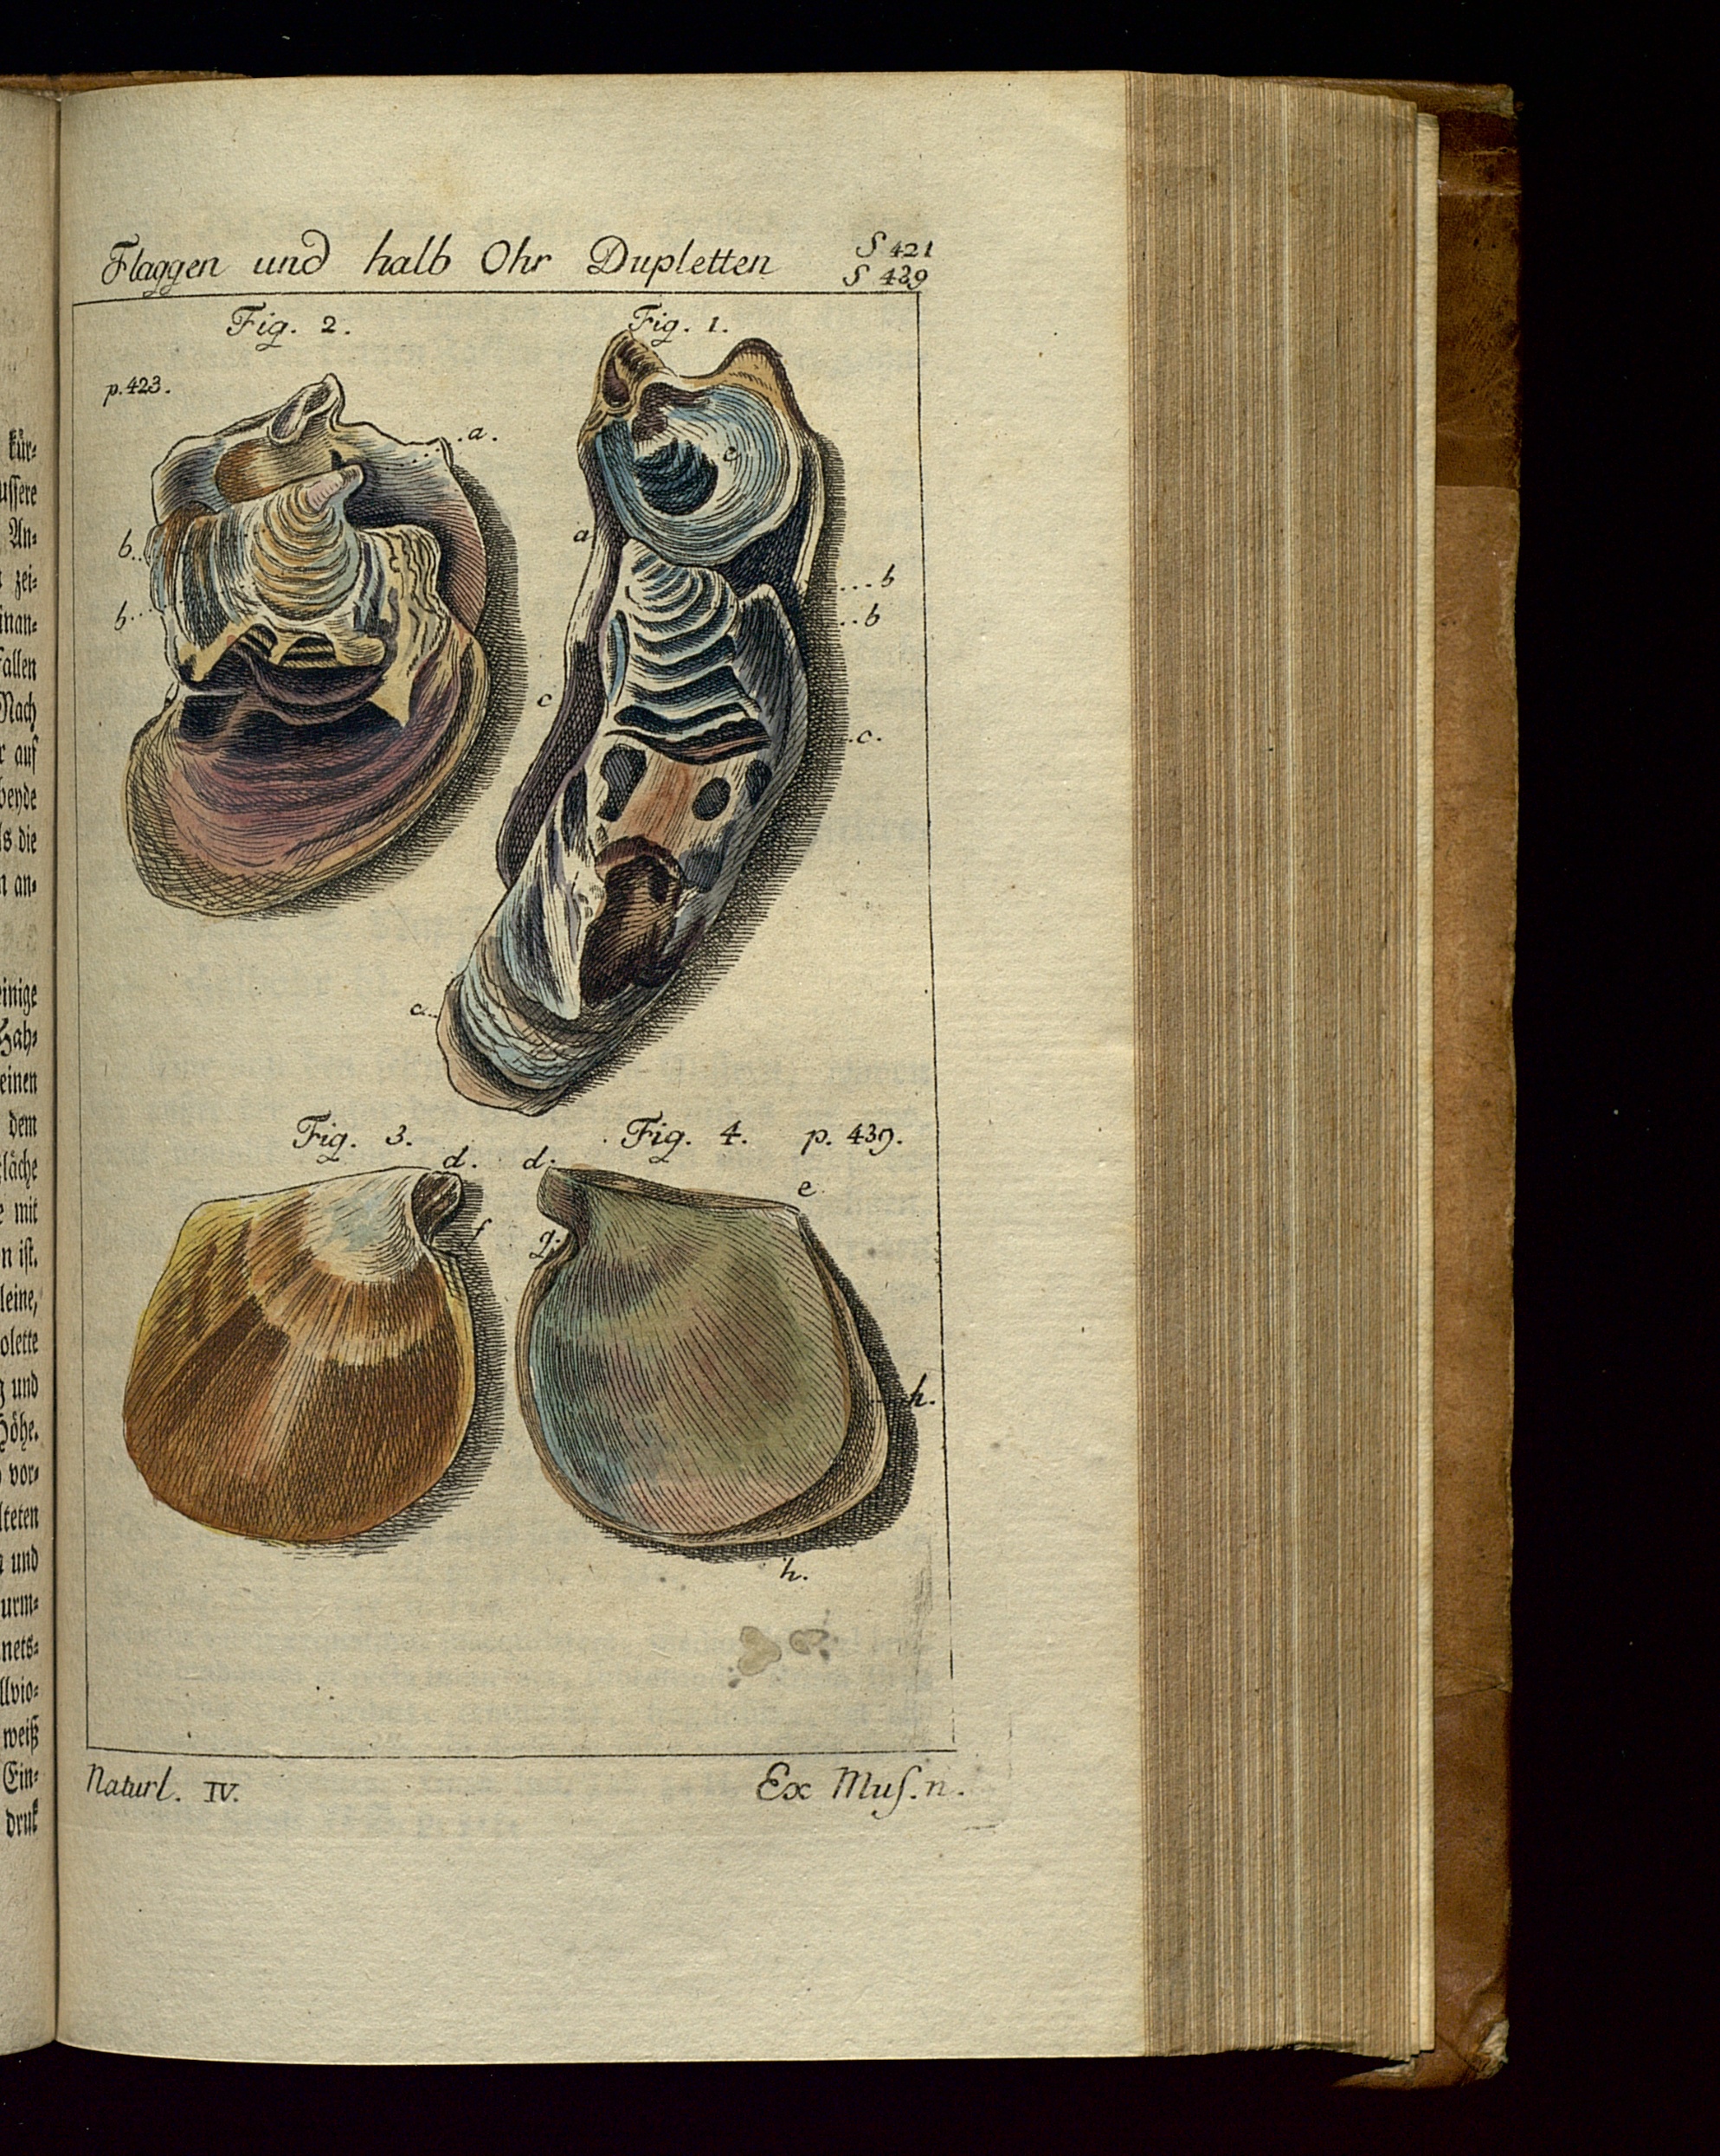 Flaggen und halb Ohr Dupletten
S 421
S 439
Fig. 2.
Fig. 1.
p. 423.
a.
e
b..
a
...b
b..
..b
c
.c.
a..
Fig. 3.
Fig. 4. p. 439.
d.
d.
e
f
g.
h.
h.
Naturl. IV.
Ex Muſ. n.
kür-
uſſere
An-
zei-
inan-
fallen
Nach
r auf
beyde
ls die
n an-
einige
Hah-
einen
dem
fläche
e mit
n iſt.
leine,
olette
g und
Höhe.
vor-
lteten
n und
urm-
nets-
llvio-
weiß
Ein-
druk